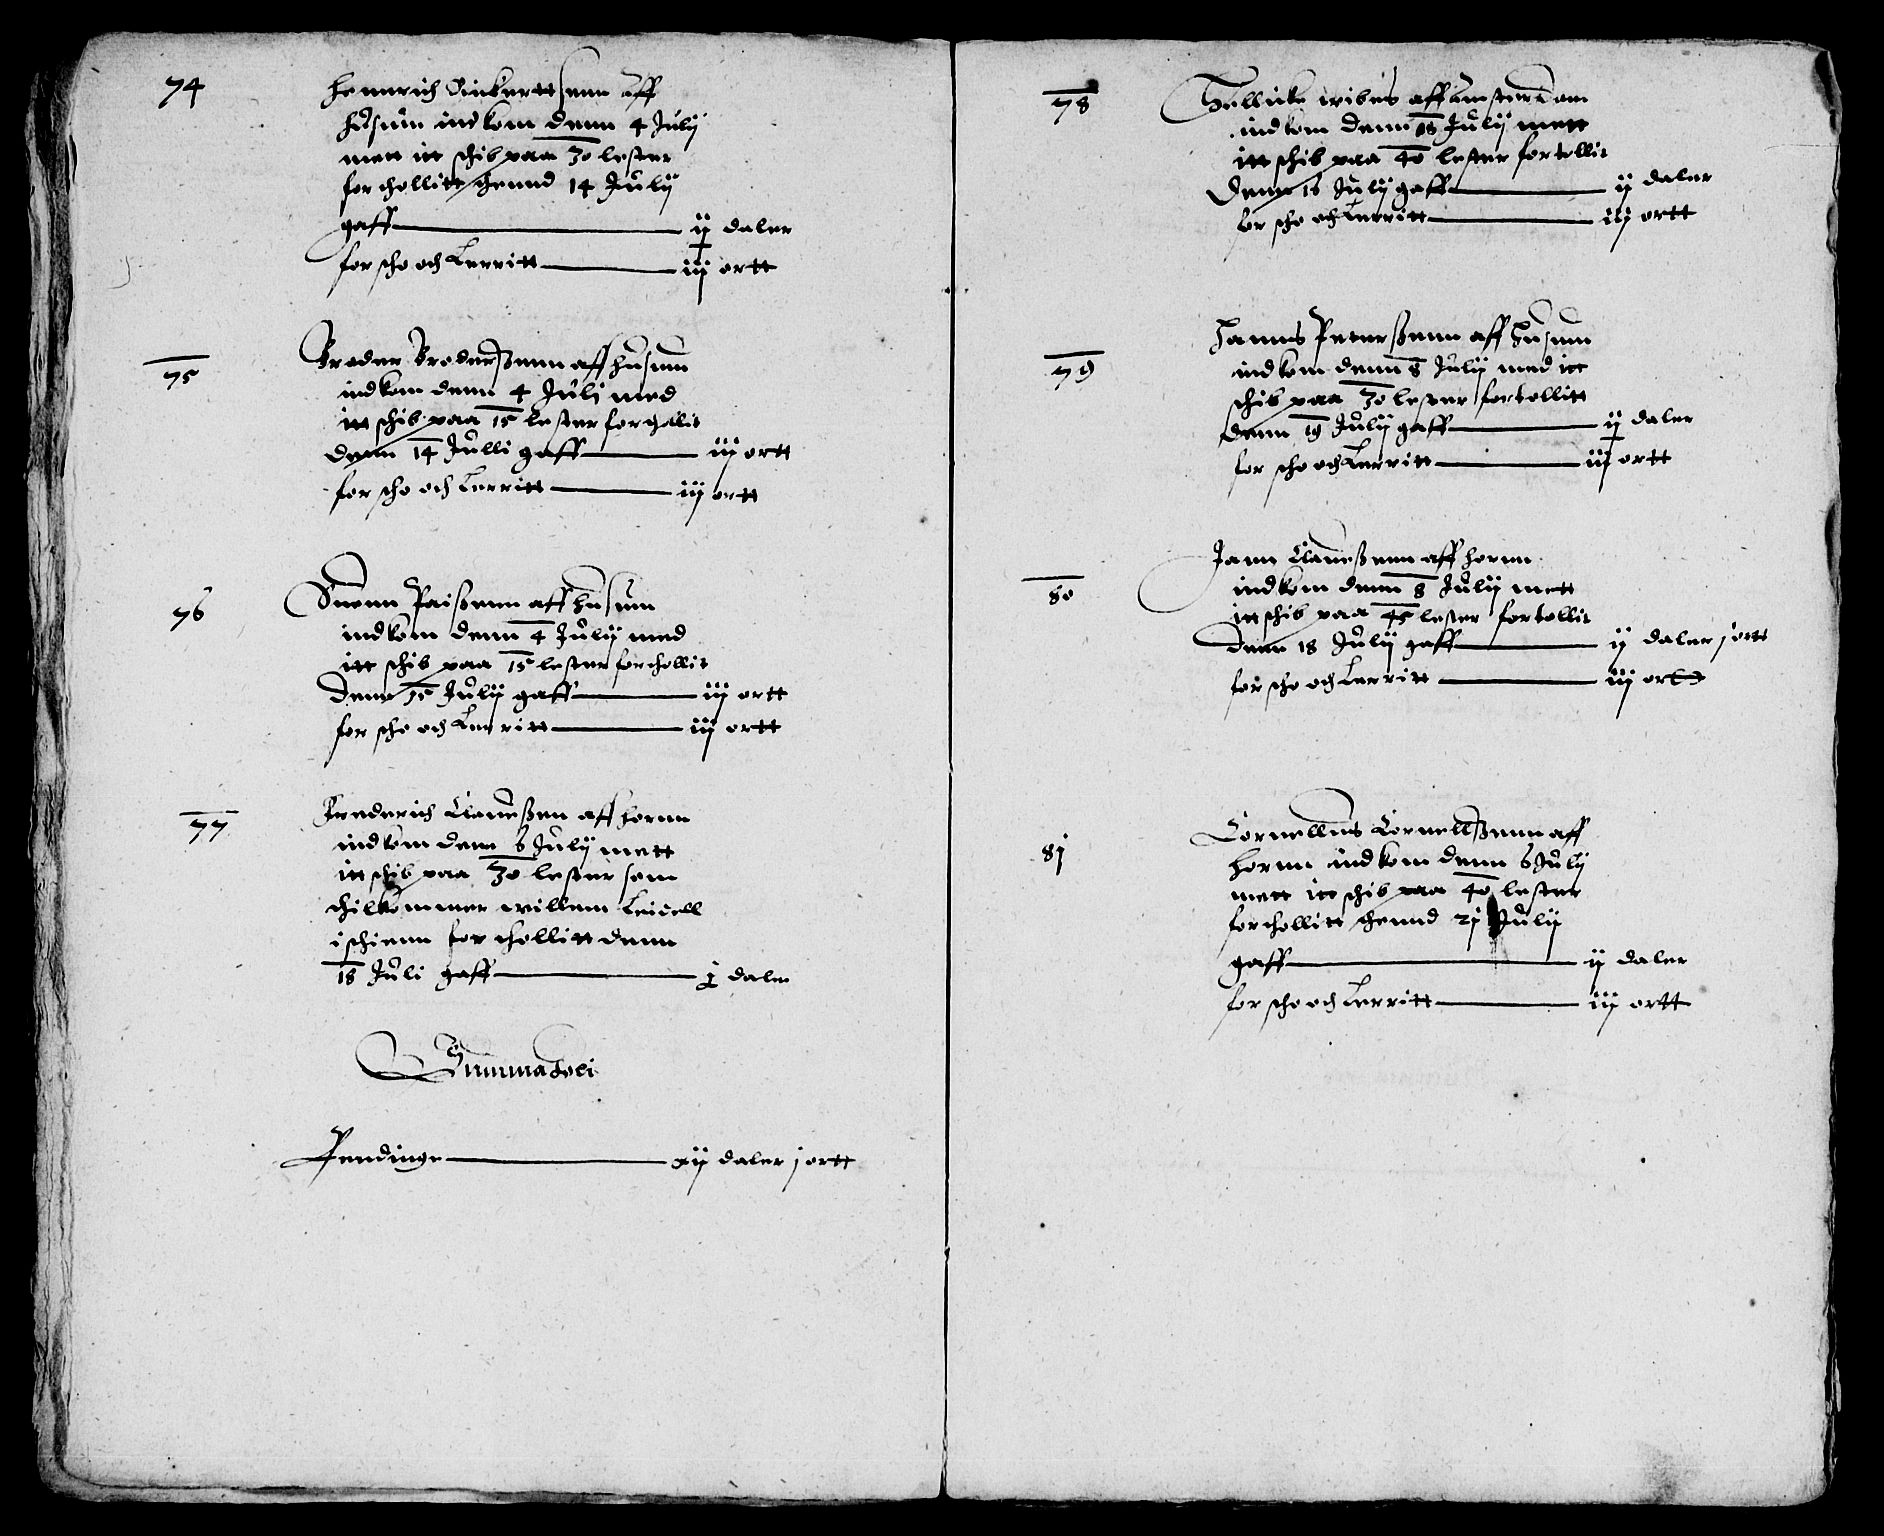 74
Henrich Rickerttsenn aff
Husum indkom denn 4 Julÿ
mett itt schib paa 30 lester
forthollitt thennd 14 Julÿ
gaff — ij daler
for scho och Lerritt — iij ortt
75
Broder Broderßenn aff Husum
indkom denn 4 Julj med
itt schib paa 15 lester forthollit
denn 14 Julli gaff — iij ortt
for scho och Lerritt — iij ortt
76
Suenn Paißenn aff Husum
indkom denn 4 Julÿ med
itt schib paa 15 lester forthollit
denn 15 Julÿ gaff — iij ortt
for scho och Lerritt — iij ortt
77
Frederich Claueßen aff Hornn
indkom denn 8 Julÿ mett
itt schib paa 30 lester som
thilkommer willem
i schienn forthollitt denn
18 Juli gaff — j daler
Summa toli
Pendinge — xij daler j ortt
78
wibes aff Amsterdam
indkom denn 18 Julÿ mett
itt schib paa 40 lester fortollit
denn 18 Julÿ gaff — ij daler
for scho och Lerritt — iij ortt
79
Hanns Peterßenn aff Husum
indkom denn 8 Julÿ med itt
schib paa 30 lester fortollitt
denn 19 Julÿ gaff — ij daler
for scho och Lerritt — iij ortt
80
Jann Claueßenn aff hornn
indkom denn 8 Julÿ mett
itt schib paa 45 lester fortollit
denn 18 Julÿ gaff — ij daler j ortt
for scho och Lerritt — iij ortt
81
Cornellius Cornellßenn aff
hornn indkom denn 8 Julÿ
mett itt schib paa 40 lester
forthollitt thennd 21 Julÿ
gaff — ij daler
for scho och Lerritt — iij ortt